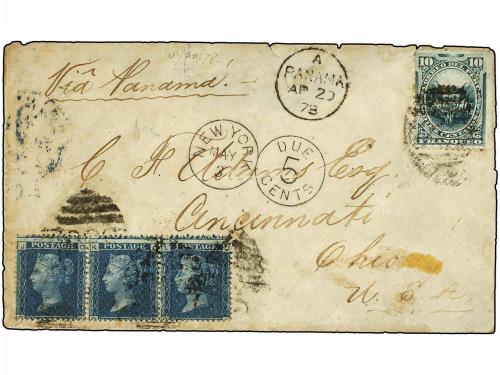 Via Panamá
A
PANAMA
AP 20
78
10 10
FRANQUEO
NEW YORK
MAY
DUE
5
CENTS
C. F. Adams Esq
Cincinnati
Ohio
U.S.A
POSTAGE
POSTAGE
POSTAGE